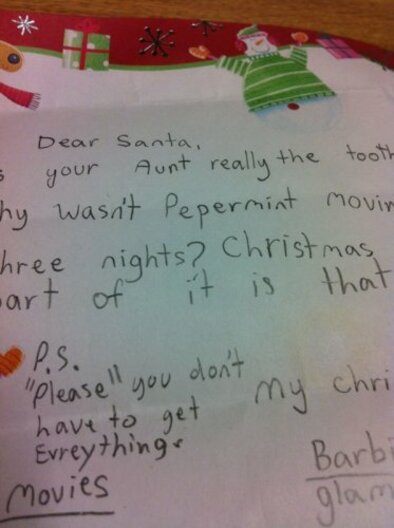 Dear Santa,
your Aunt really the tooth
hy wasn't Pepermint movin
hree nights? Christmas
part of it is that
P.S.
"Please" you don't
have to get
Evreything.
My chri
Barbi
glam
Movies